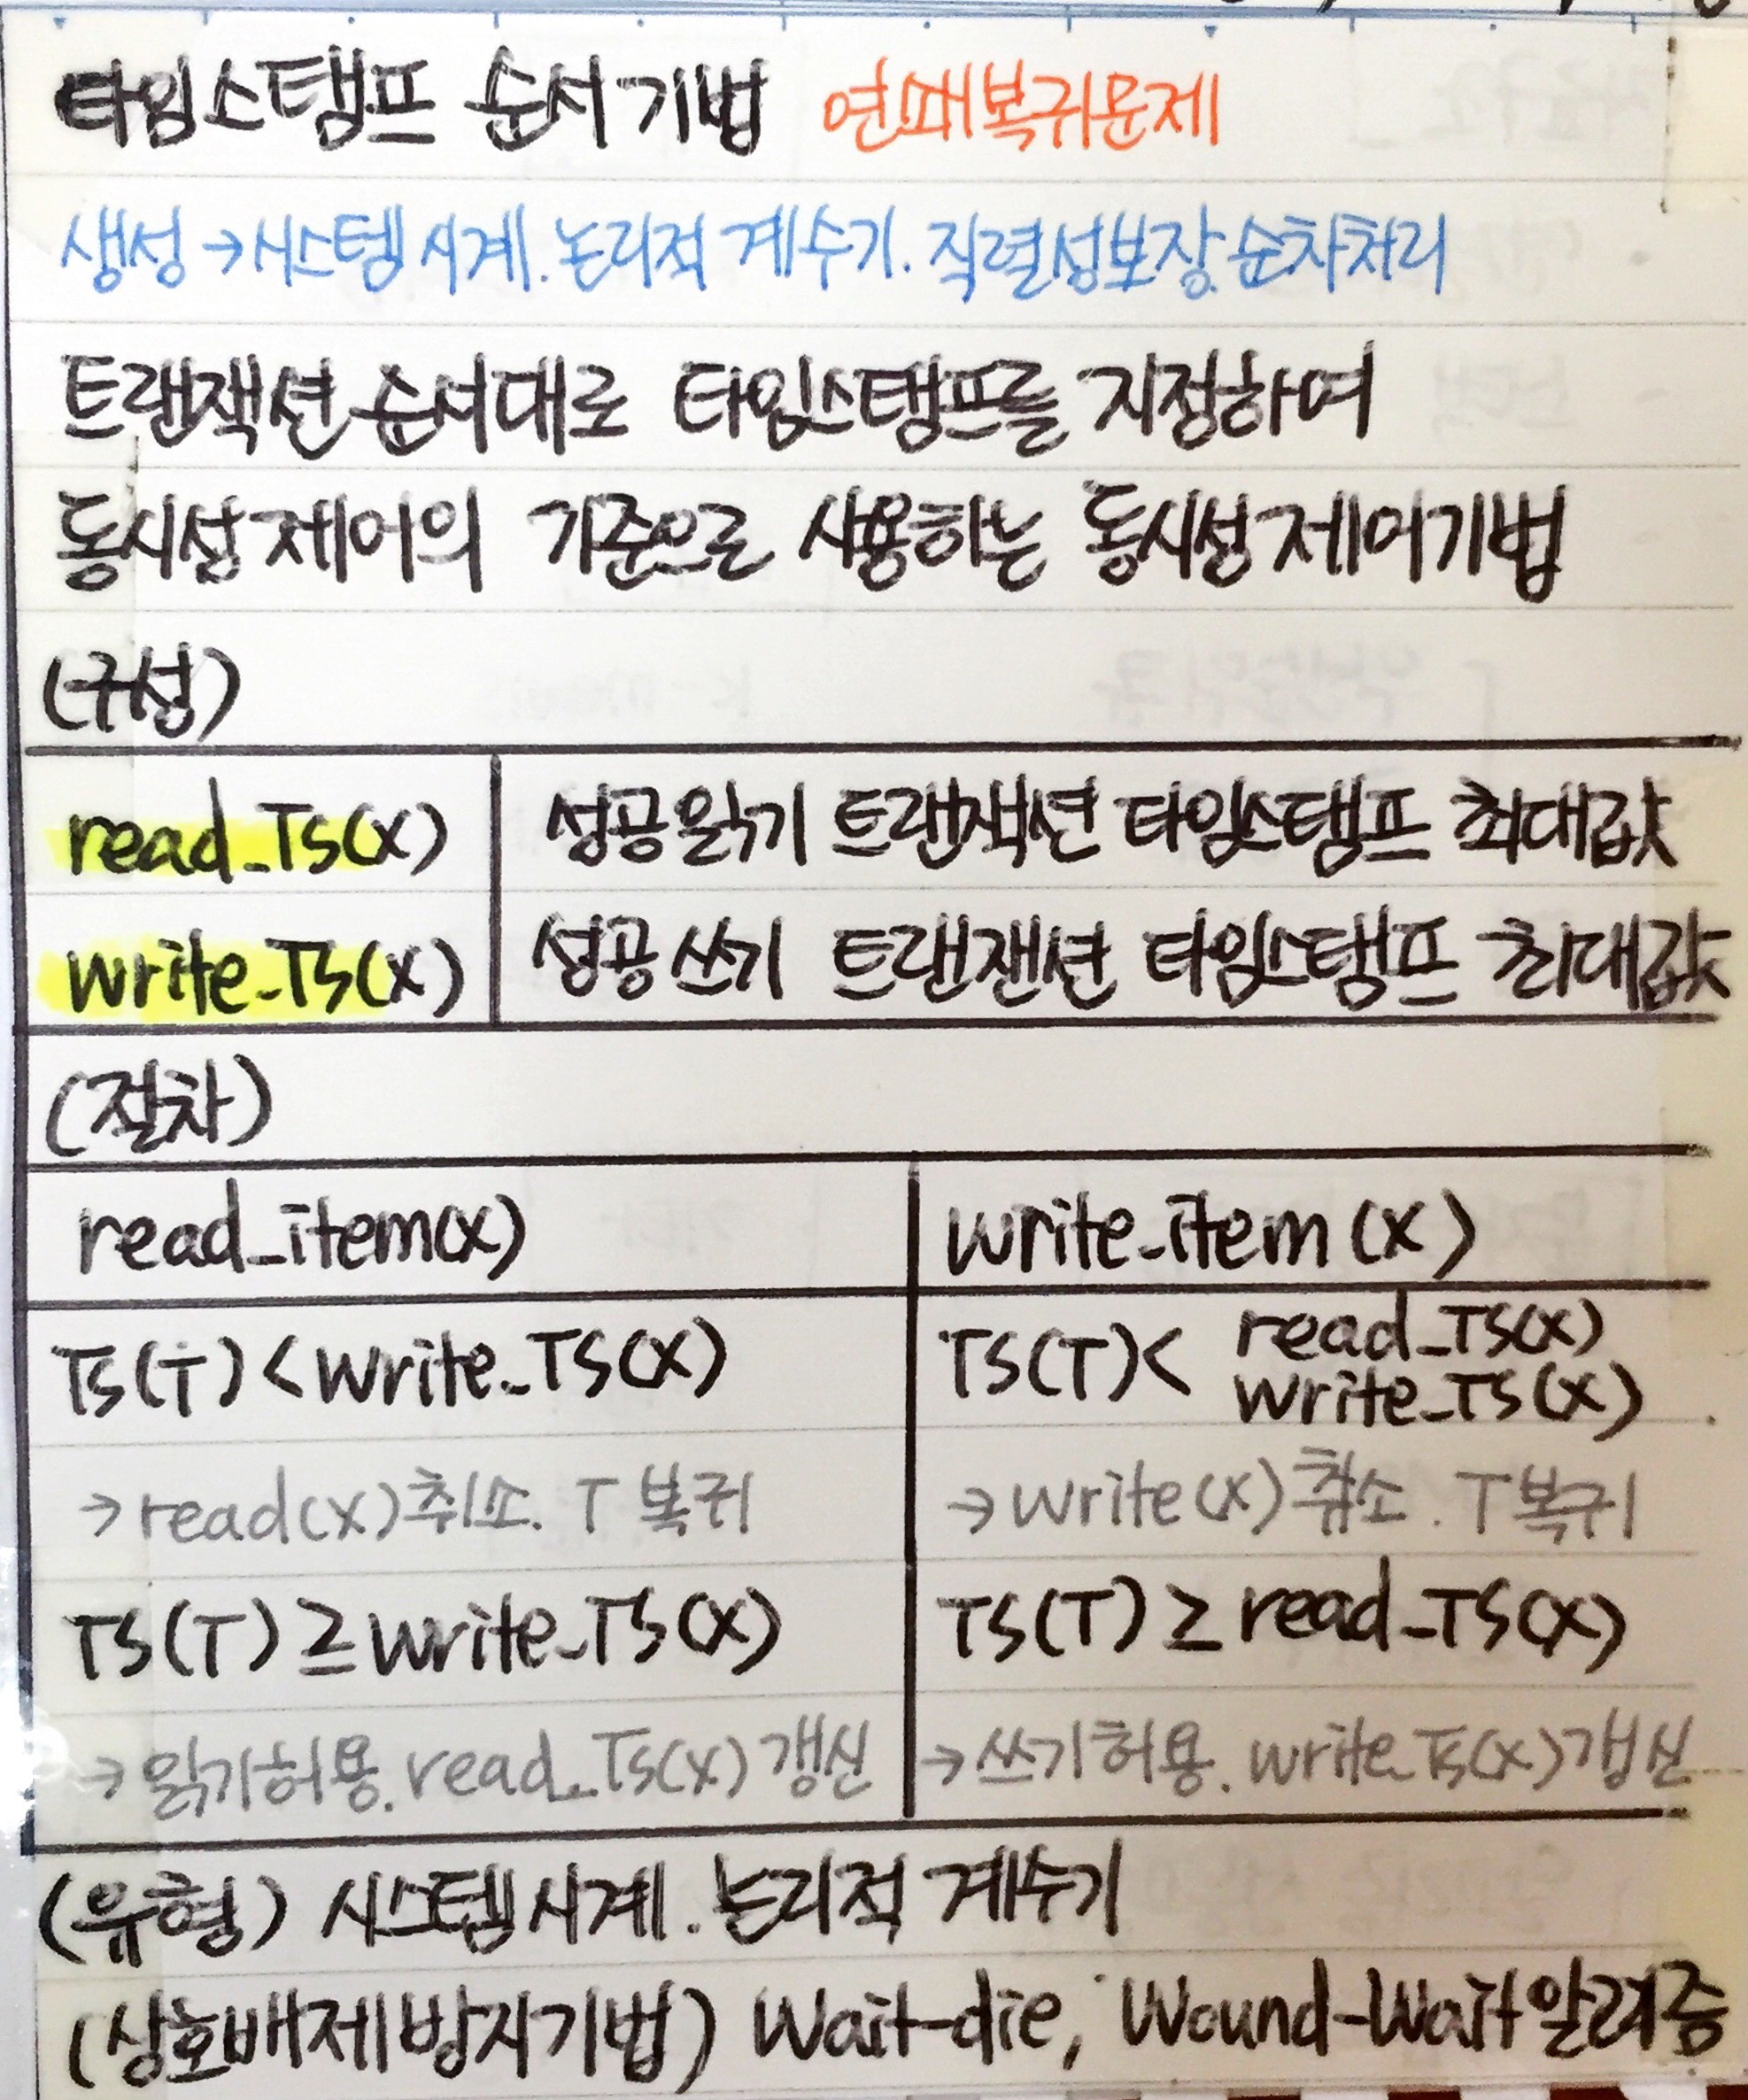 타임스탬프 순서 기법 연쇄복귀문제
생성→시스템시계. 논리적 계수기. 직렬성보장.순차처리
트랜잭션 순서대로 타임스탬프를 지정하여
동시성 제어의 기준으로 사용하는 동시성 제어기법
(구성)
read_Ts(x) 성공읽기 트랜잭션 타임스탬프 최대값
write_Ts(x) 성공쓰기 트랜잭션 타임스탬프 최대값
(절차)
read_item(x) write_item (x)
Ts(T) < write_TS(x) TS(T) < read_TS(x) write_TS(x)
→read(x)취소. T 복귀 →write(x)취소. T복귀
TS(T) ≥ write_TS(x) TS(T) ≥ read_TS(x)
→읽기허용. read_Ts(x)갱신 →쓰기허용. write_Ts(x)갱신
(유형) 시스템시계. 논리적 계수기
(상호배제방지기법) Wait-die, Wound-Wait알려줌